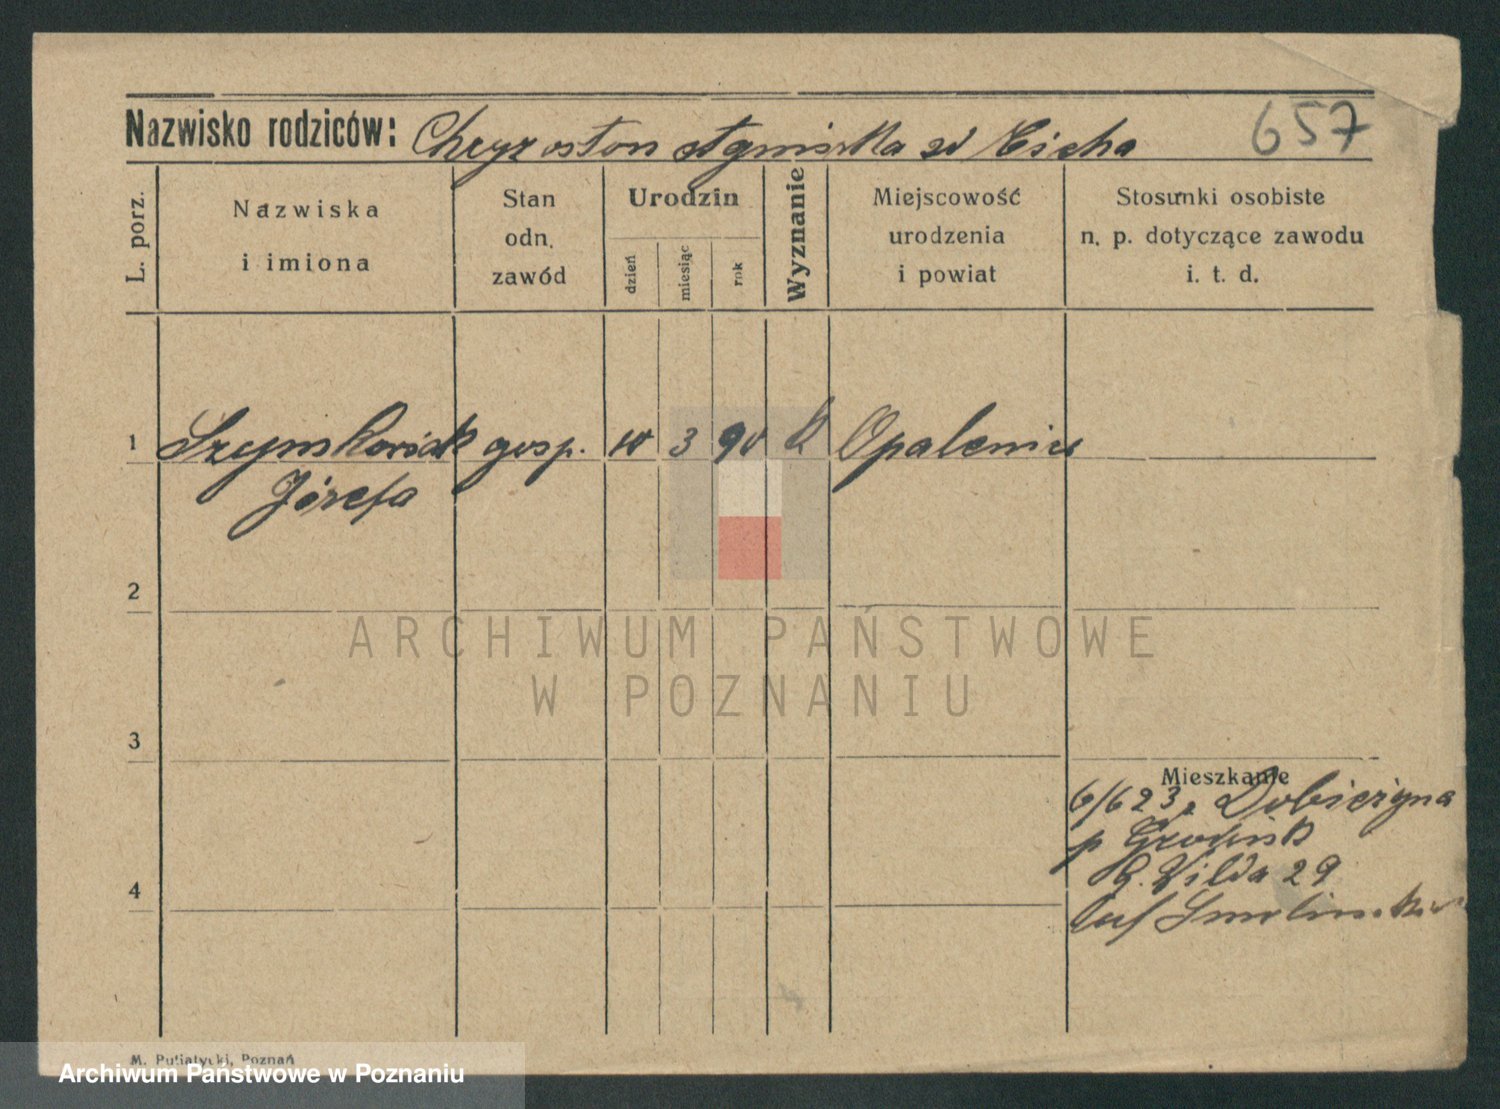 657
Nazwisko rodziców: Chryzostom Agnieszka zd Cicha
L. porz.
Nazwiska
i imiona
Stan
odn.
zawód
Urodzin
dzień
miesiąc
rok
Wyznanie
Miejscowość
urodzenia
i powiat
Stosunki osobiste
n. p. dotyczące zawodu
i. t. d.
1 Szymkowiak gosp. 10 3 90 k Opalenica
Józefa
2
ARCHIWUM PAŃSTWOWE
W POZNANIU
3
Mieszkanie
6/6 23 z Dobieżyna
p Grodzisk
G. Wilda 29
4
M. Putiatycki, Poznań
Archiwum Państwowe w Poznaniu